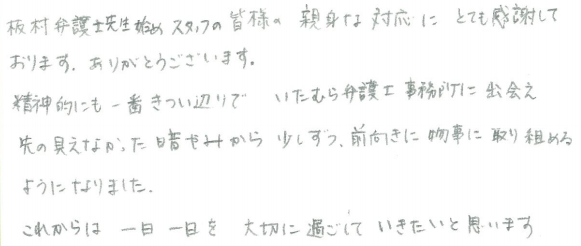 板村弁護士先生始め スタッフの 皆様の 親身な 対応に とても感謝して
おります。ありがとうございます。
精神的にも 一番 きつい辺りで いたむら弁護士 事務所に 出会え
先の見えなかった 暗やみから 少しずつ、前向きに 物事に 取り組める
ようになりました。
これからは 一日 一日を 大切に 過ごして いきたいと 思います